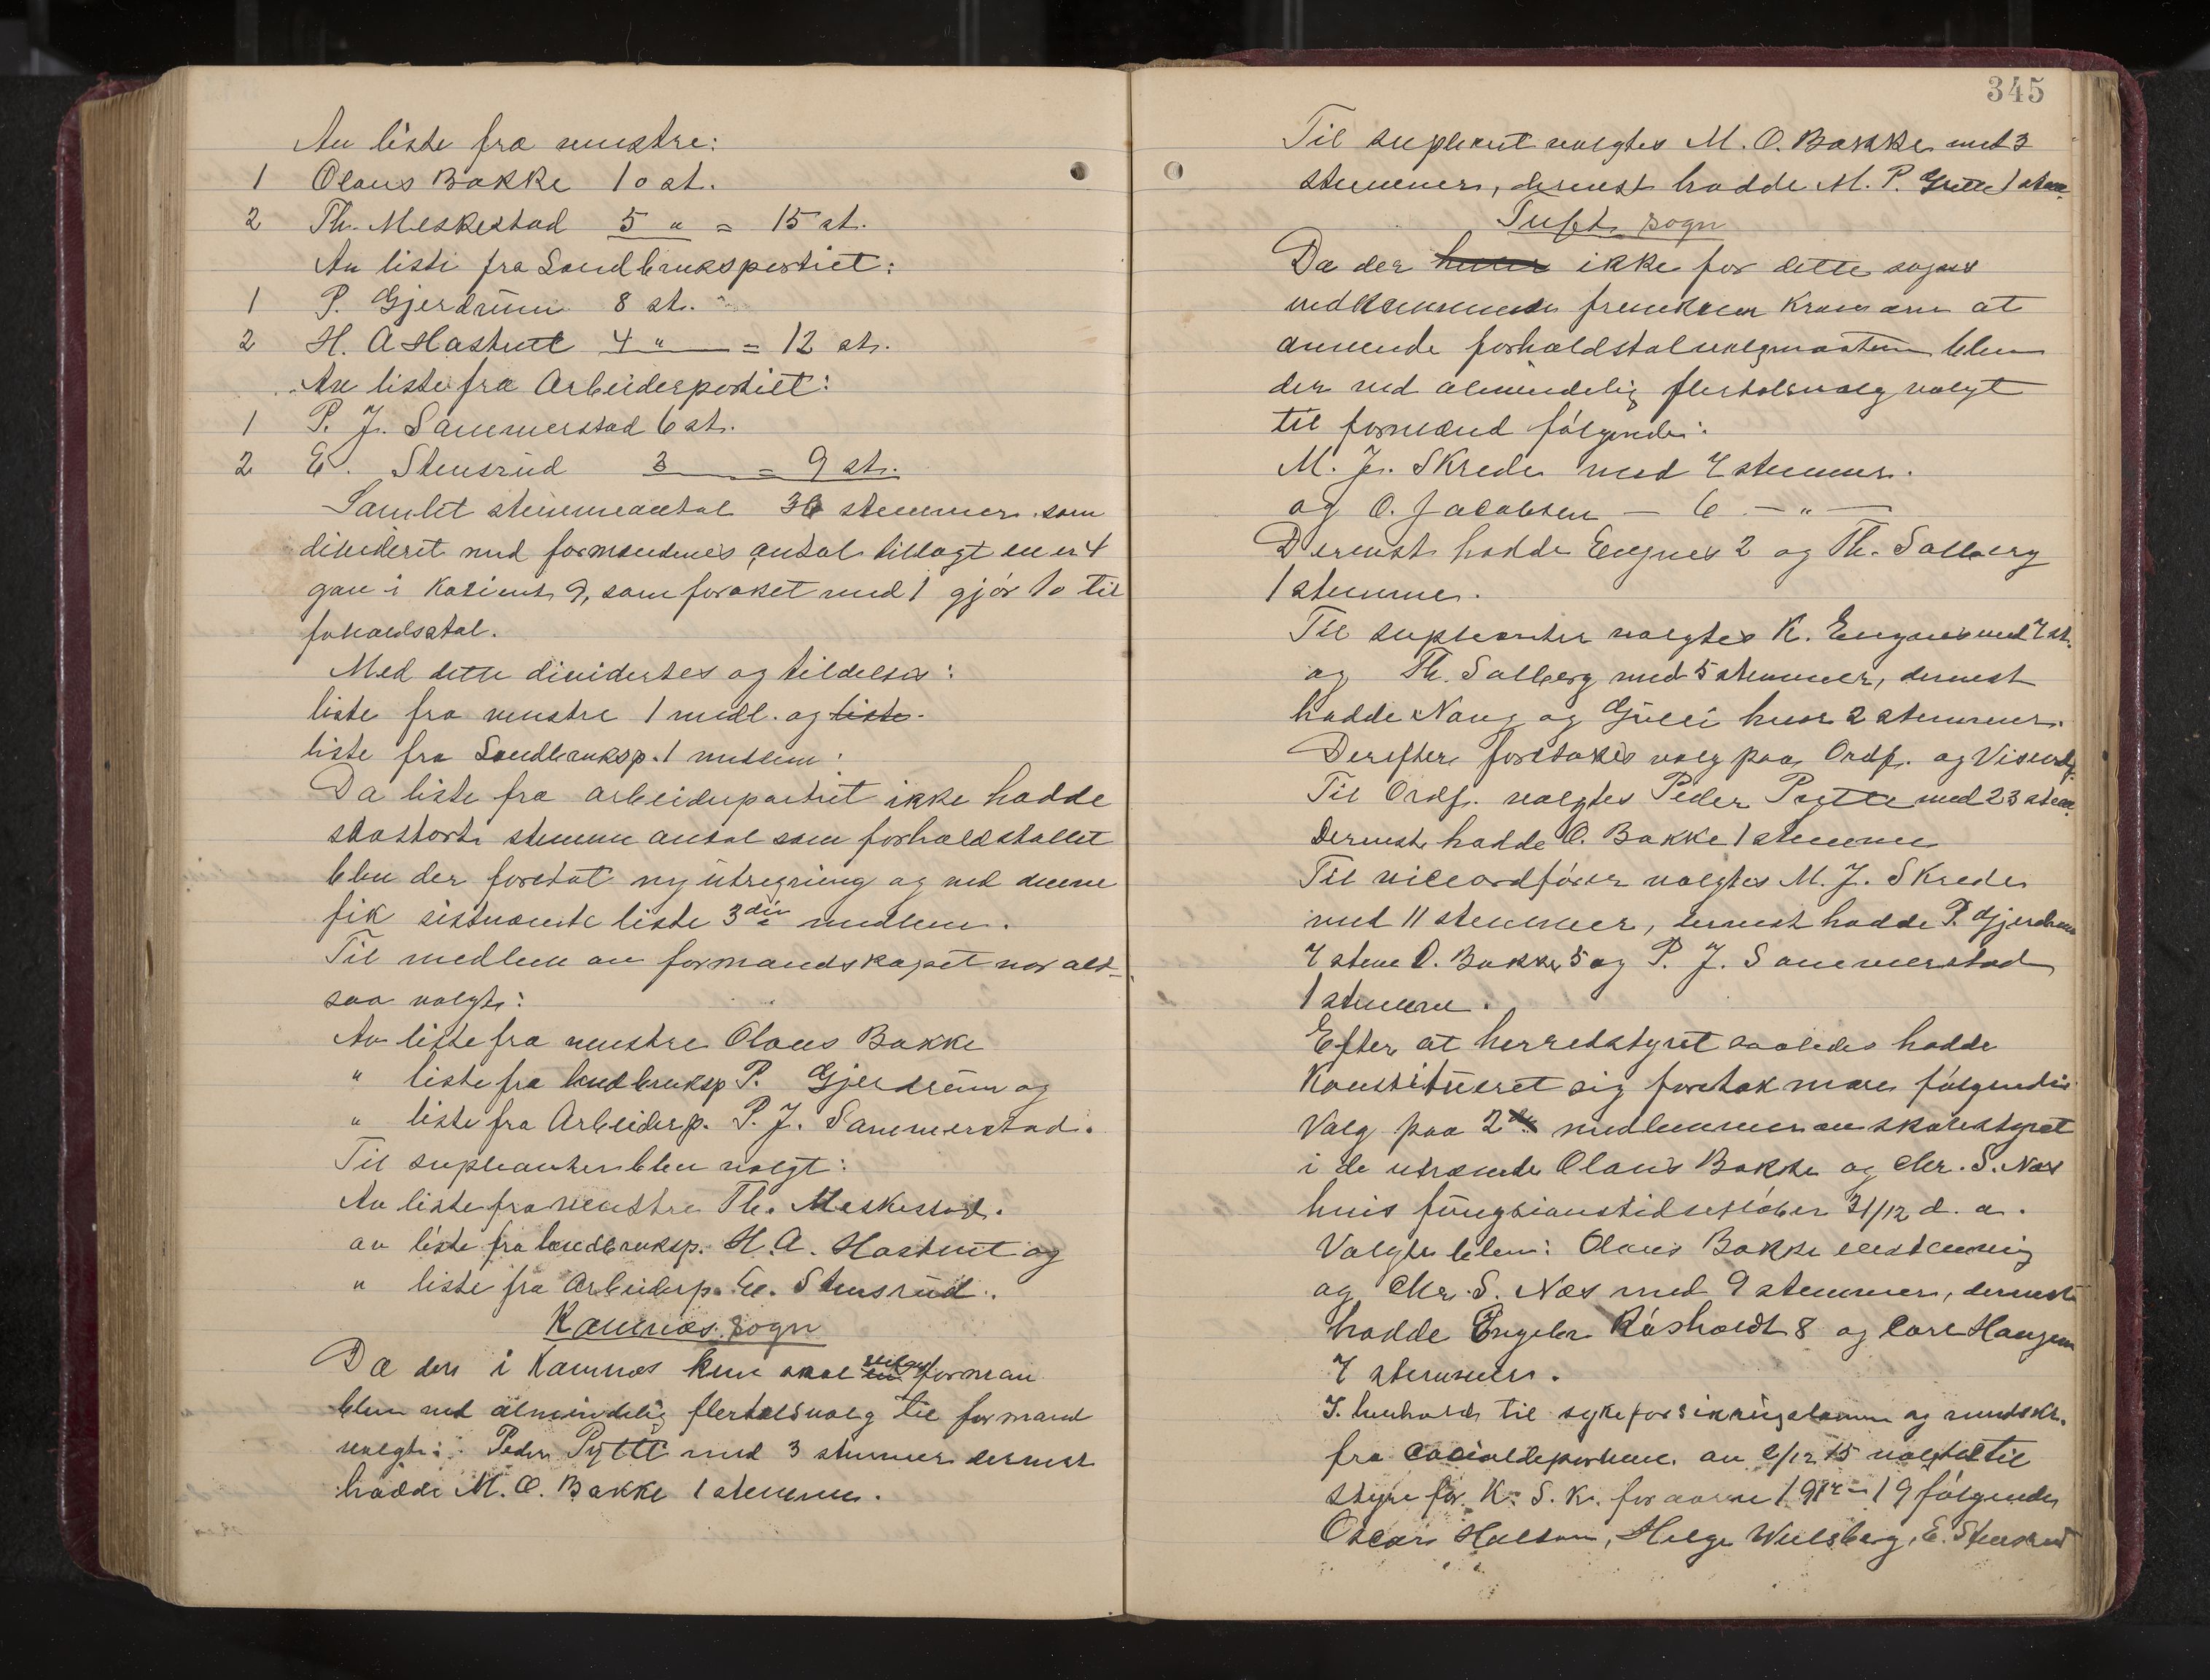 Av liste fra venstre:
1 Olaus Bakke 10 st.
2 Th. Meskestad 5 " = 15 st.
Av liste fra Landbrukspartiet:
1 P. Gjerdrum 8 st.
2 H. A Hastvet 4 " = 12 st.
Av liste fra Arbeiderpartiet:
1 P. J. Sammerstad 6 st.
2 E. Stensrud 3 = 9 st.
Samlet stemmeantal 36 stemmer som
divideret med formændenes antal tillagt en er 4
gav i kosient 9, som forøket med 1 gjør 10 til
foholdstal.
Med dette divideretes og tildeltes:
liste fra venstre 1 medl. og liste
liste fra Landbruksp. 1 medlem.
Da liste fra arbeiderpartiet ikke hadde
saa stort stemme antal som forholdstallet
blev der foretat ny utregning og ved denne
fik sistnævnte liste 3die medlem.
Til medlem av formandskapet var alt-
saa valgt:
Av liste fra venstre Olaus Bakke
" liste fra landbruksp P. Gjerdrum og
" liste fra Arbeiderp. P. J. Sammerstad.
Til supleanter blev valgt:
Av liste fra venstre Th. Meskestad.
av liste fra landbruksp. H. A. Hastvet og
" liste fra Arbeiderp. E. Stensrud.
Komnæs sogn
Da der i Komnæs kun skal en forman
blev ved almindelig flertalsvalg til formand
valgt: Peder Pytte med 3 stemmer dernæst
hadde M. O. Bakke 1 stemme.
345
Til supleant valgtes M. O. Bakke med 3
stemmer, dernest hadde M. P. 1 stem.
Tuft sogn
Da der heller ikke for dette sogns
vedkommende fremkom krav om at
anvende forholdstalvalgmaaten blev
der ved almindelig flertalsvalg valgt
til formænd følgende:
M. J. Skrede med 7 stemmer.
og O. Jacobsen — 6 — " —
Dernest hadde Engnes 2 og Th. Solberg
1 stemme.
Til supleanter valgtes K. Engnes med 7 st.
og Th. Solberg med 5 stemmer, dernest
hadde Naug og Gulli hver 2 stemmer.
Derefter foretokes valg paa Ordf. og Viseordf.
Til Ordf. valgtes Peder Pytte med 23 stem.
Dernest hadde O. Bakke 1 stemme
Til viceordfører valgtes M. J. Skrede
med 11 stemmer, dernest hadde P. Gjerdrum
7 stem O. Bakke 5 og P. J. Sammerstad
1 stemme.
Efter at herredstyret saaledes hadde
konstitueret sig foretok man følgende
Valg paa 2 medlemmer av skolestyret
i de uttrædende Olaus Bakke og Chr. S. Næs
hvis fungsionstid utløber 31/12 d. a.
Valgte blev: Olaus Bakke enstemmig
og Chr. S. Næs med 9 stemmer, dernest
hadde Engebr. Røsholdt 8 og Carl Haugen
7 stemmer.
I henhold til sykeforsikringsloven og rundskr.
fra Socialdepartem. av 2/12 15 valgtes til
styre for K. S. K. for aarene 1917–19 følgende
Oscar Halsen, Helge Wulsberg, E. Stensrud